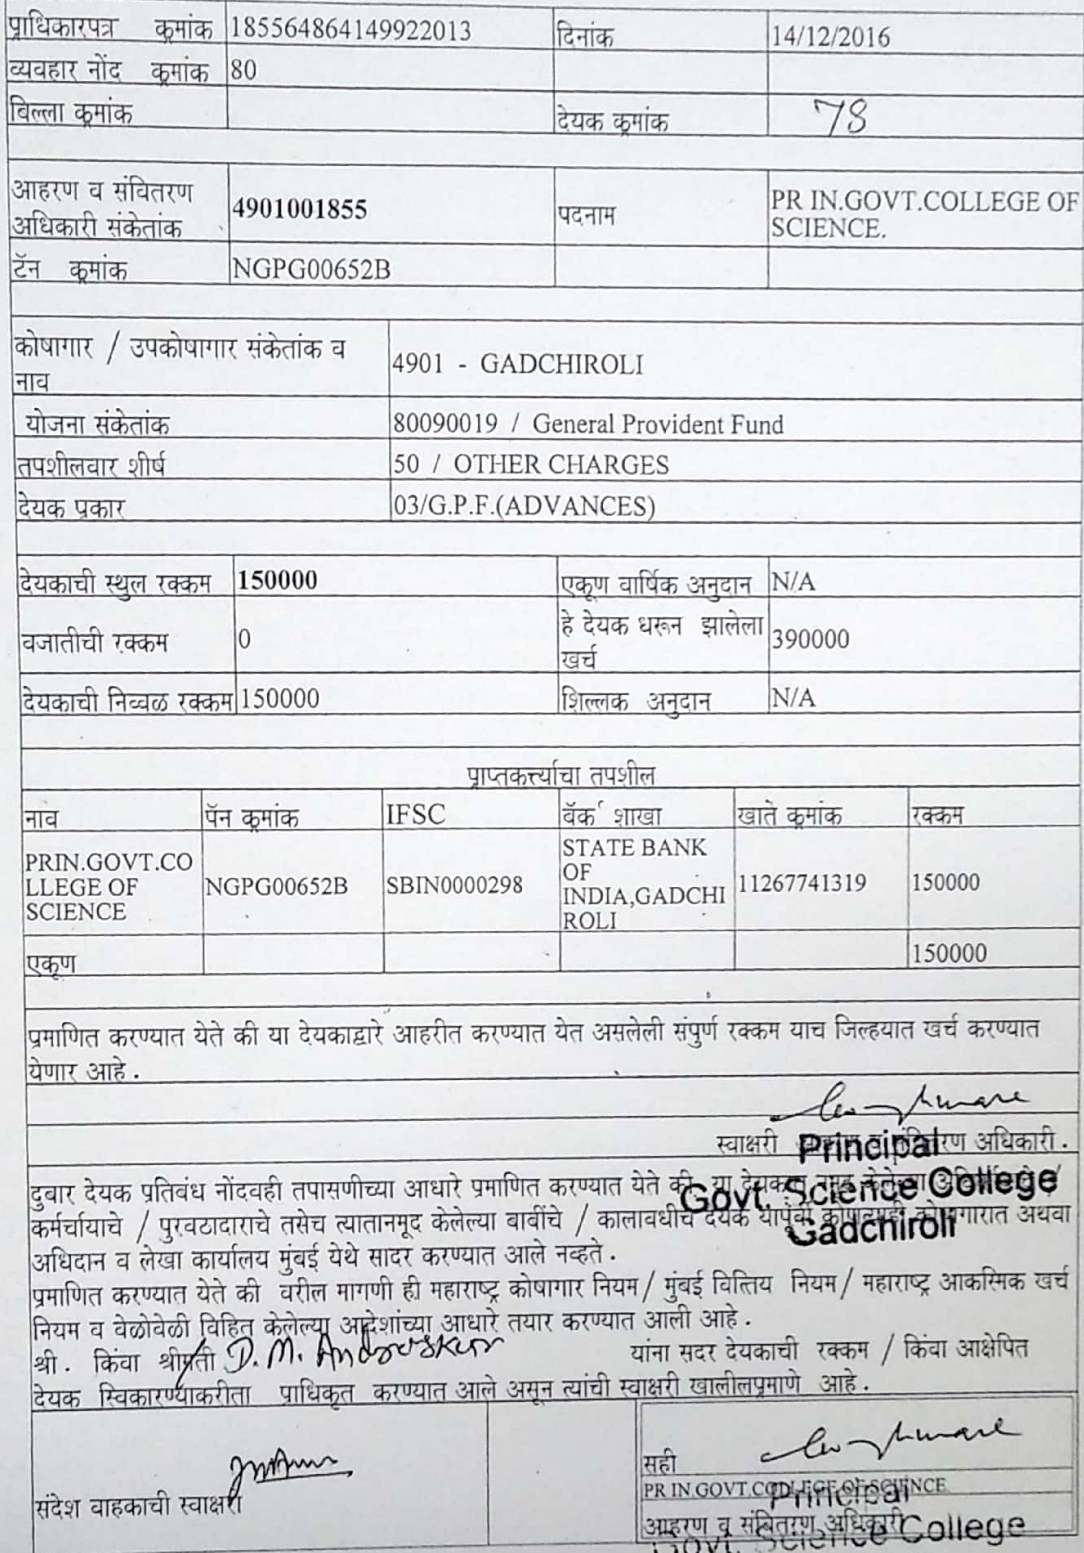 प्राधिकारपत्र क्रमांक 185564864149922013 दिनांक 14/12/2016
व्यवहार नोंद क्रमांक 80
बिल्ला क्रमांक देयक क्रमांक 78
आहरण व संवितरण
अधिकारी संकेतांक 4901001855 पदनाम PR IN.GOVT.COLLEGE OF
SCIENCE.
टॅन क्रमांक NGPG00652B
कोषागार / उपकोषागार संकेतांक व
नाव 4901 - GADCHIROLI
योजना संकेतांक 80090019 / General Provident Fund
तपशीलवार शीर्ष 50 / OTHER CHARGES
देयक प्रकार 03/G.P.F.(ADVANCES)
देयकाची स्थुल रक्कम 150000 एकूण वार्षिक अनुदान N/A
वजातीची रक्कम 0 हे देयक धरून झालेला
खर्च 390000
देयकाची निव्वळ रक्कम 150000 शिल्लक अनुदान N/A
प्राप्तकर्त्याचा तपशील
नाव पॅन क्रमांक IFSC बॅक शाखा खाते क्रमांक रक्कम
PRIN.GOVT.CO
LLEGE OF
SCIENCE NGPG00652B SBIN0000298 STATE BANK
OF
INDIA,GADCHI
ROLI 11267741319 150000
एकूण 150000
प्रमाणित करण्यात येते की या देयकाद्वारे आहरीत करण्यात येत असलेली संपुर्ण रक्कम याच जिल्हयात खर्च करण्यात
येणार आहे.
स्वाक्षरी अधिकारी.
Principal
Govt. Science College
Gadchiroli
दुबार देयक प्रतिबंध नोंदवही तपासणीच्या आधारे प्रमाणित करण्यात येते की या
कर्मचांयाचे / पुरवठादाराचे तसेच त्यातानमूद केलेल्या बाबींचे / कालावधीचे देयक यापूर्वी अथवा
अधिदान व लेखा कार्यालय मुंबई येथे सादर करण्यात आले नव्हते.
प्रमाणित करण्यात येते की वरील मागणी ही महाराष्ट्र कोषागार नियम/ मुंबई वित्तिय नियम/ महाराष्ट्र आकस्मिक खर्च
नियम व वेळोवेळी विहित केलेल्या आदेशांच्या आधारे तयार करण्यात आली आहे.
श्री. किंवा श्रीमती D. M. यांना सदर देयकाची रक्कम / किंवा आक्षेपित
देयक स्विकारण्याकरीता प्राधिकृत करण्यात आले असून त्यांची स्वाक्षरी खालीलप्रमाणे आहे.
संदेश वाहकाची स्वाक्षरी
सही
PR IN.GOVT.COLLEGE OF SCIENCE
आहरण व संवितरण अधिकारी
Principal
Govt. Science College